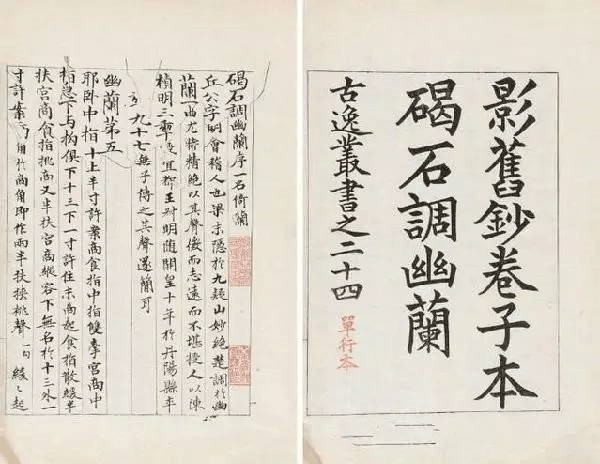 影舊鈔卷子本
碣石調幽蘭
古逸叢書之二十四
單行本
碣石調幽蘭序一名倚蘭
丘公字明會稽人也梁末隱於九疑山妙絕楚調於幽
蘭一曲尤特精絕以其聲微而志遠而不堪授人以陳
禎明三年授宜都王叔明隨開皇十年於丹陽縣卒
九十七無子傳之其聲遂簡耳
幽蘭第五
耶臥中指十上半寸許案商食指中指雙牽宮商中
指急下与拘俱下十三下一寸許住末商起食指散緩半
扶宮商食指挑商又半扶宮商縱容下無名於十三外一
寸許案商角於商角即作兩半扶挾挑聲一句緩〻起